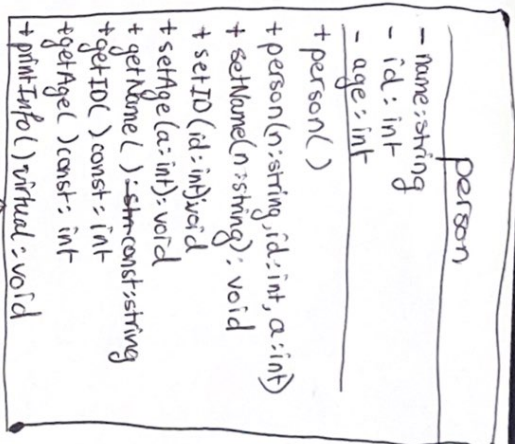 person
- name: string
- id: int
- age: int
+ person()
+ person(n: string, id: int, a: int)
+ setName(n: string): void
+ setID(id: int): void
+ setAge(a: int): void
+ getName() const: string
+ getID() const: int
+ getAge() const: int
+ printInfo() virtual: void